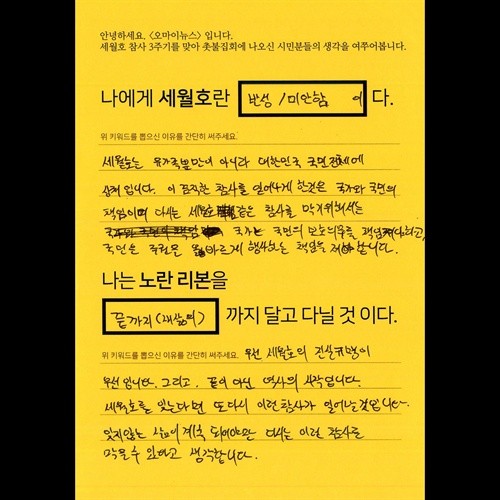 안녕하세요. <오마이뉴스> 입니다.
세월호 참사 3주기를 맞아 촛불집회에 나오신 시민분들의 생각을 여쭈어봅니다.
나에게 세월호란 반성 / 미안함 이 다.
위 키워드를 뽑으신 이유를 간단히 써주세요.
세월호는 유가족뿐만이 아니라 대한민국 국민전체에
상처입니다. 이 끔찍한 참사를 일어나게 한것은 국가와 국민의
책임이며 다시는 세월호 같은 참사를 막기위해서는
국가는 국민의 보호의무를 책임져야하고,
국민은 주권은 올바르게 행사하는 책임을 져야 합니다.
나는 노란 리본을
끝까지 ( ) 까지 달고 다닐 것 이다.
위 키워드를 뽑으신 이유를 간단히 써주세요. 우선 세월호의 진실규명이
우선입니다. 그리고, 끝이 아닌 역사의 시작입니다.
세월호를 잊는다면 또다시 이런참사가 일어나는것입니다.
잊지않는 계속 되어야만 다시는 이런 참사를
막을수 있다고 생각합니다.